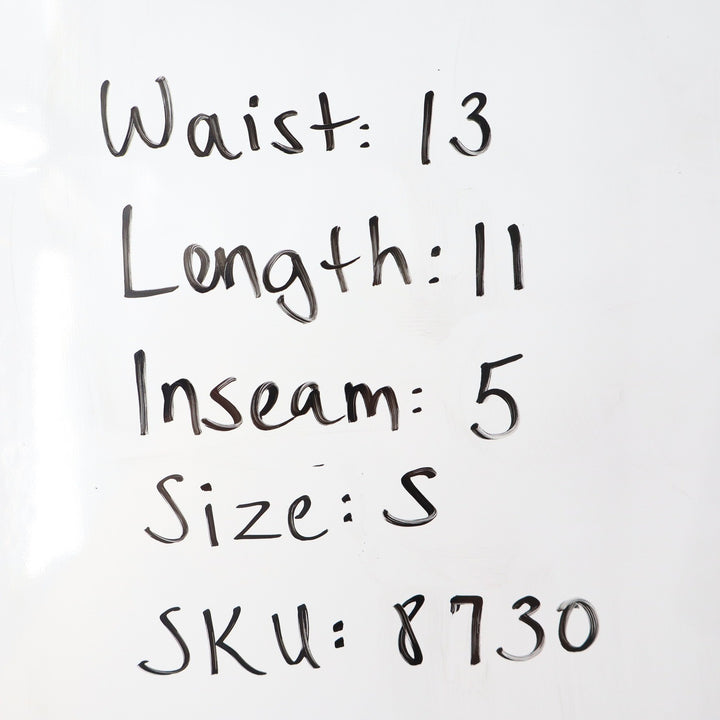 Waist: 13
Length: 11
Inseam: 5
Size: S
SKU: 8730